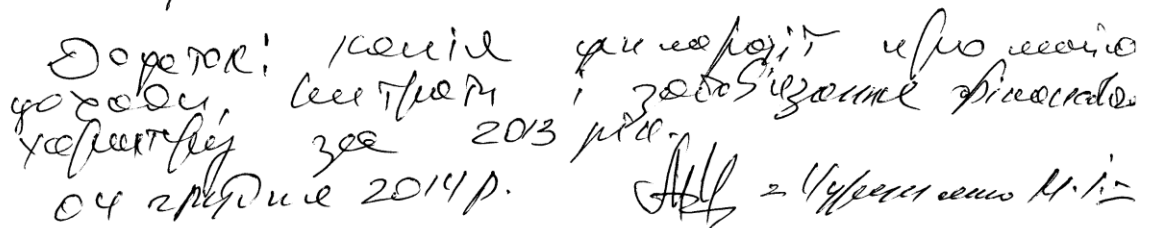 Додаток: копія декларації про майно
доходи, витрати і зобов'язання фінансового
характеру за 2013 рік.
04 грудня 2014 р.